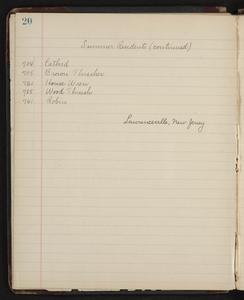 20
Summer Residents (continued)
704 Catbird
705 Brown Thrasher
721 House Wren
755 Wood Thrush
761 Robin
Lawrenceville, New Jersey